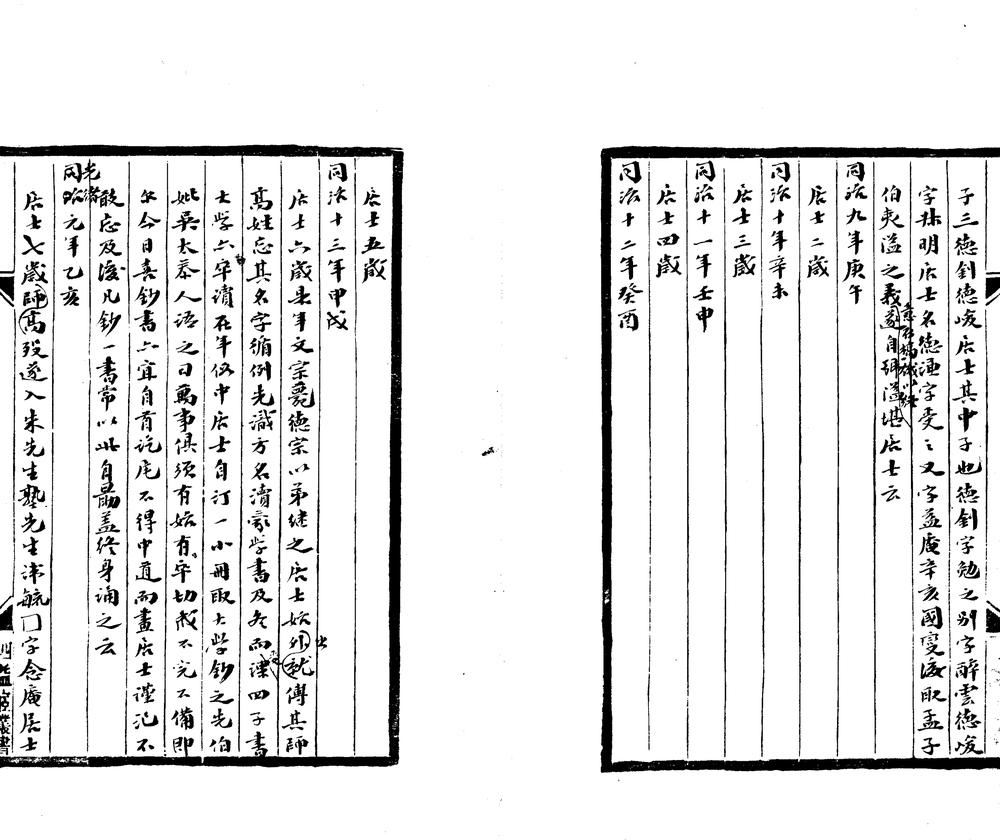 子三德釗德峻居士其中子也德釗字勉之別字醉雲德峻
字犿明居士名德洍字受之又字益庵辛亥國變後取孟子
伯夷隘之義遂自號隘堪居士云
同治九年庚午
居士二歲
同治十年辛未
居士三歲
同治十一年壬申
居士四歲
同治十二年癸酉
居士五歲
同治十三年甲戌
居士六歲是年文宗毅德宗以弟繼之居士始出就傅其師
高姓忘其名字循例先識方名瀆蒙学書及冬而課四子書
大学六卒讀在年伍中居士自汀一小冊取大学鈔之先伯
妣吳太恭人語之曰萬事俱須有始有卒切戒不完不備即
尔今日喜鈔書亦宜自首訖尾不得中道而畫居士謹記不
敢忘及後凡鈔一書常以此自勗蓋終身誦之云
光緒元年乙亥
居士七歲師高歿遂入朱先生塾先生沛毓□字念庵居士